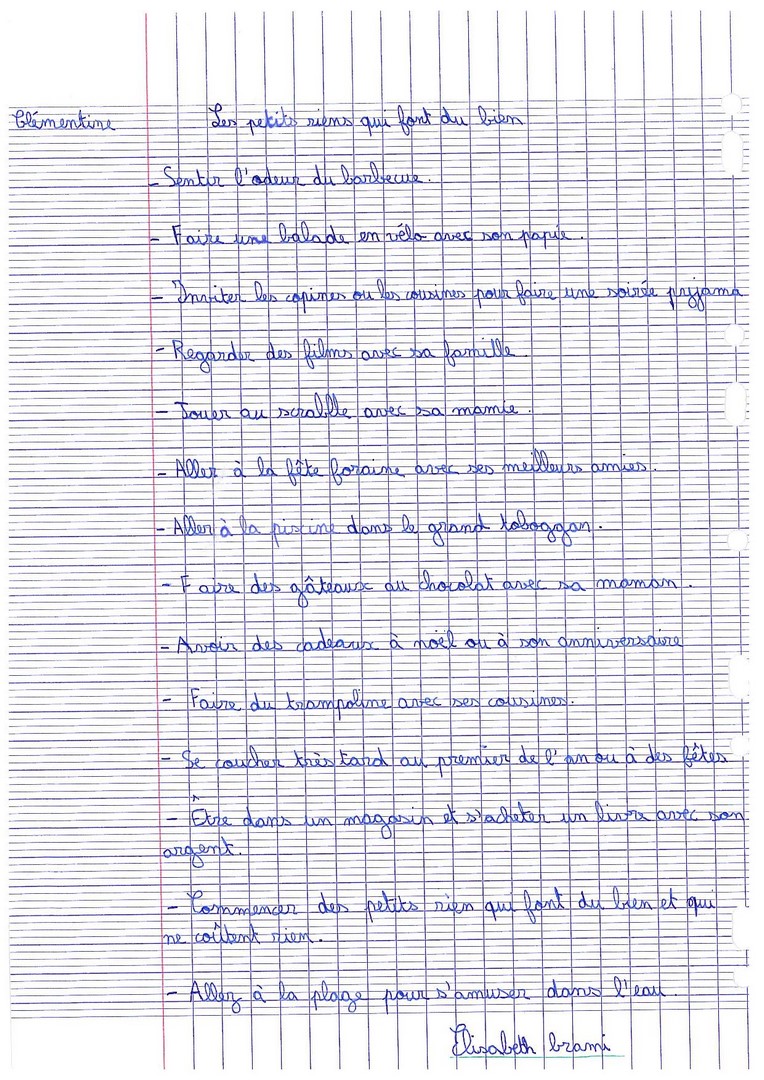 Clémentine Les petits riens qui font du bien
- Sentir l'odeur du barbecue.
- Faire une balade en vélo avec son papie.
- Inviter les copines ou les cousines pour faire une soirée pyjama
- Regarder des films avec sa famille.
- Jouer au scrabble avec sa mamie.
- Aller à la fête foraine avec ses meilleurs amies.
- Aller à la piscine dans le grand toboggan.
- Faire des gâteaux au chocolat avec sa maman.
- Avoir des cadeaux à noël ou à son anniversaire
- Faire du trampoline avec ses cousines.
- Se coucher très tard au premier de l'an ou à des fêtes
- Être dans un magasin et s'acheter un livre avec son
argent.
- Commencer des petits rien qui font du bien et qui
ne coûtent rien.
- Aller à la plage pour s'amuser dans l'eau.
Elisabeth brami